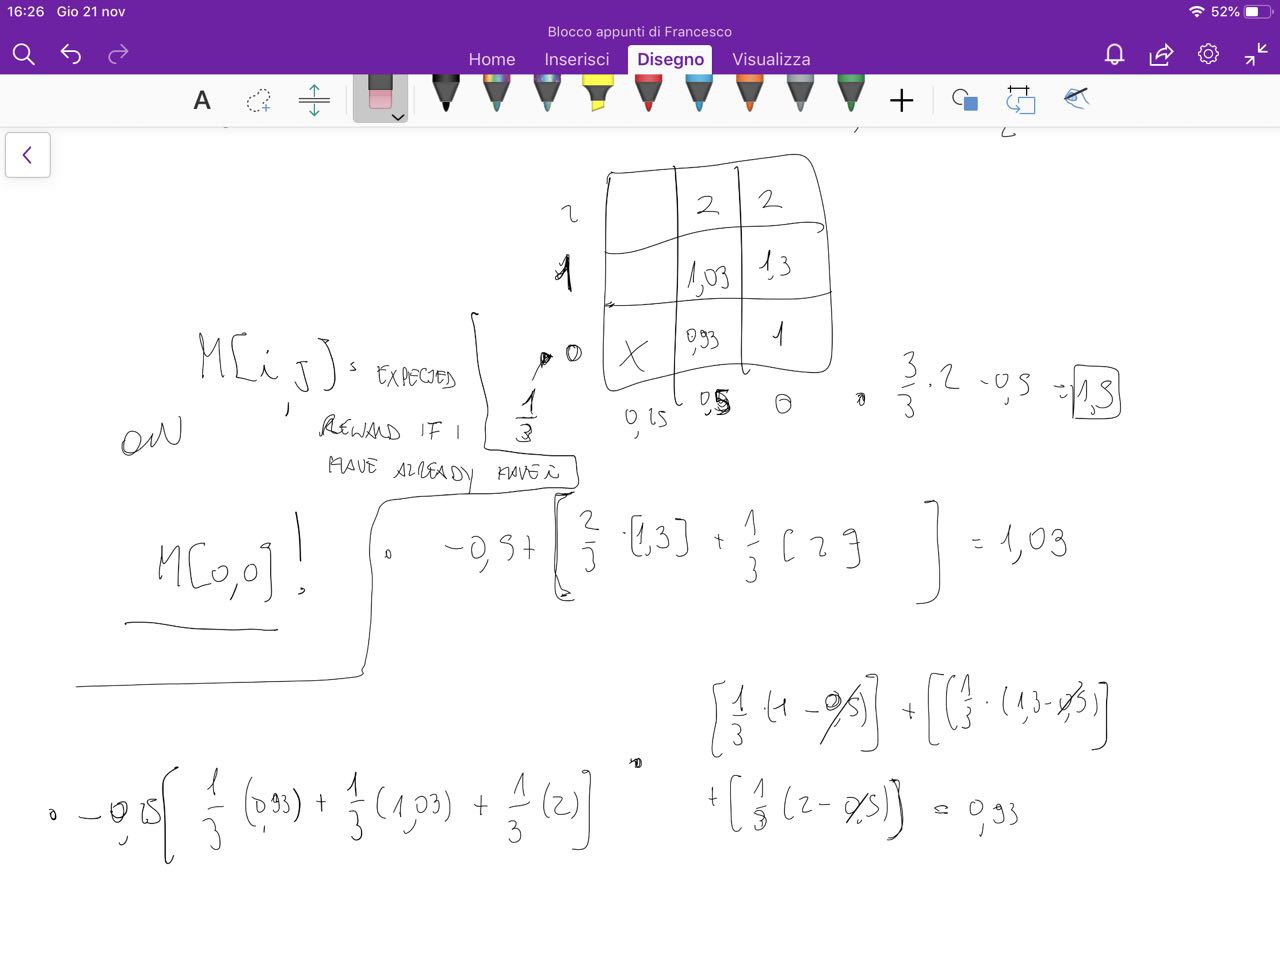 16:26 Gio 21 nov
52%
Blocco appunti di Francesco
Home Inserisci Disegno Visualizza
A
2 2 2
1 1,03 1,3
0 X 0,93 1
1/3
0,25 0,5 0
M[i,J) = EXPECTED
REWARD IF I
HAVE ALREADY HAVE i
ON
M[0,0]!
3/3 · 2 - 0,5 = 1,5
-0,5+ [2/3 · [1,3] + 1/3 [2] ] = 1,03
[1/3 · (1 - 0,5)] + [(1/3 · (1,3 - 0,5)]
+ [1/3 (2 - 0,5)] = 0,93
- 0,25 [1/3 (0,93) + 1/3 (1,03) + 1/3 (2)]